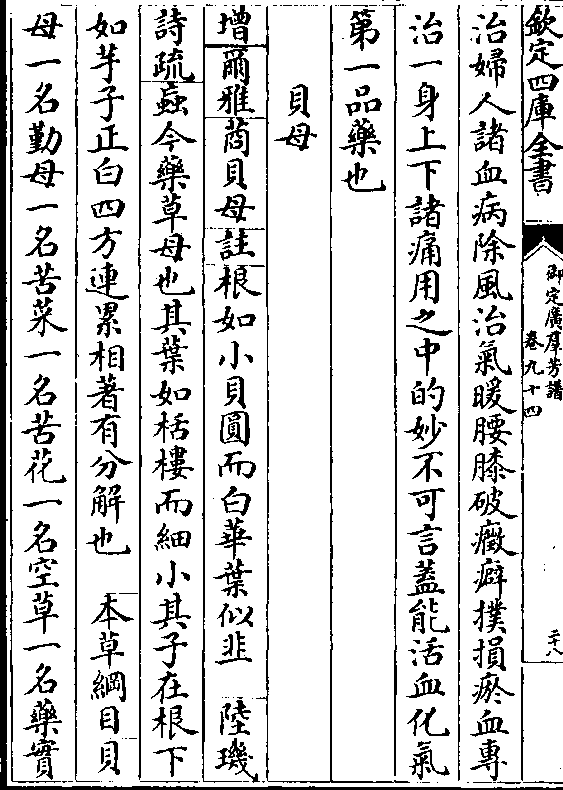 欽定四庫全書
御定廣羣芳譜
卷九十四
二十八
治婦人諸血病除風治氣暖腰膝破癥癖撲損瘀血專
治一身上下諸痛用之中的妙不可言蓋能活血化氣
第一品藥也
貝母
增爾雅莔貝母註根如小貝圓而白華葉似韭 陸璣
詩疏蝱今藥草母也其葉如栝樓而細小其子在根下
如芋子正白四方連累相著有分解也 本草綱目貝
母一名勤母一名苦菜一名苦花一名空草一名藥實